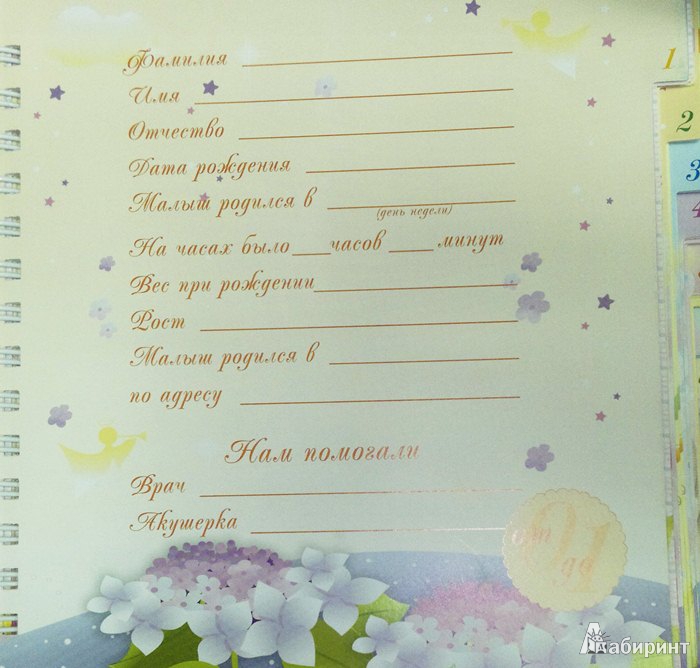 Фамилия
Имя
Отчество
Дата рождения
Малыш родился в
(день недели)
На часах было ____ часов ____ минут
Вес при рождении
Рост
Малыш родился в
по адресу
Нам помогали
Врач
Акушерка
от 0
до 1
1
2
3
4
Лабиринт